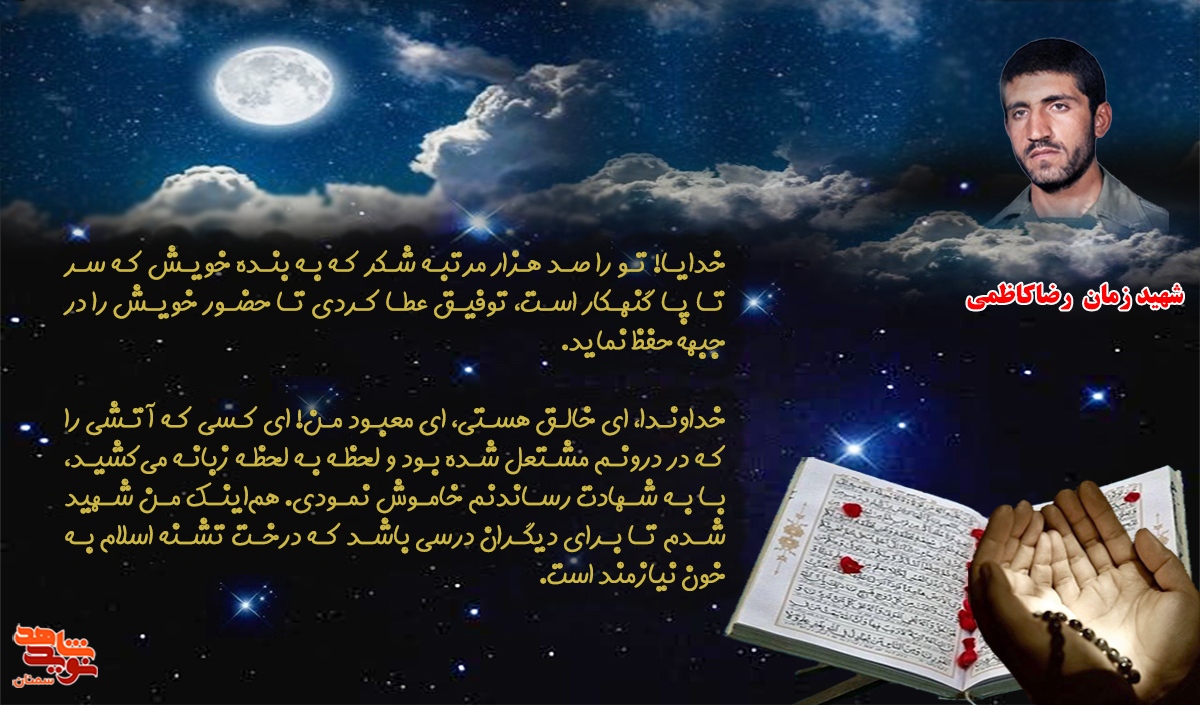 شهید زمان رضاکاظمی
خدایا! تو را صد هزار مرتبه شکر که به بنده خویش که سر
تا پا گنهکار است، توفیق عطا کردی تا حضور خویش را در
جبهه حفظ نماید.
خداوندا، ای خالق هستی، ای معبود من! ای کسی که آتشی را
که در درونم مشتعل شده بود و لحظه به لحظه زبانه می‌کشید،
با به شهادت رساندنم خاموش نمودی. هم‌اینک من شهید
شدم تا برای دیگران درسی باشد که درخت تشنه اسلام به
خون نیازمند است.
نوید شاهد
سمنان